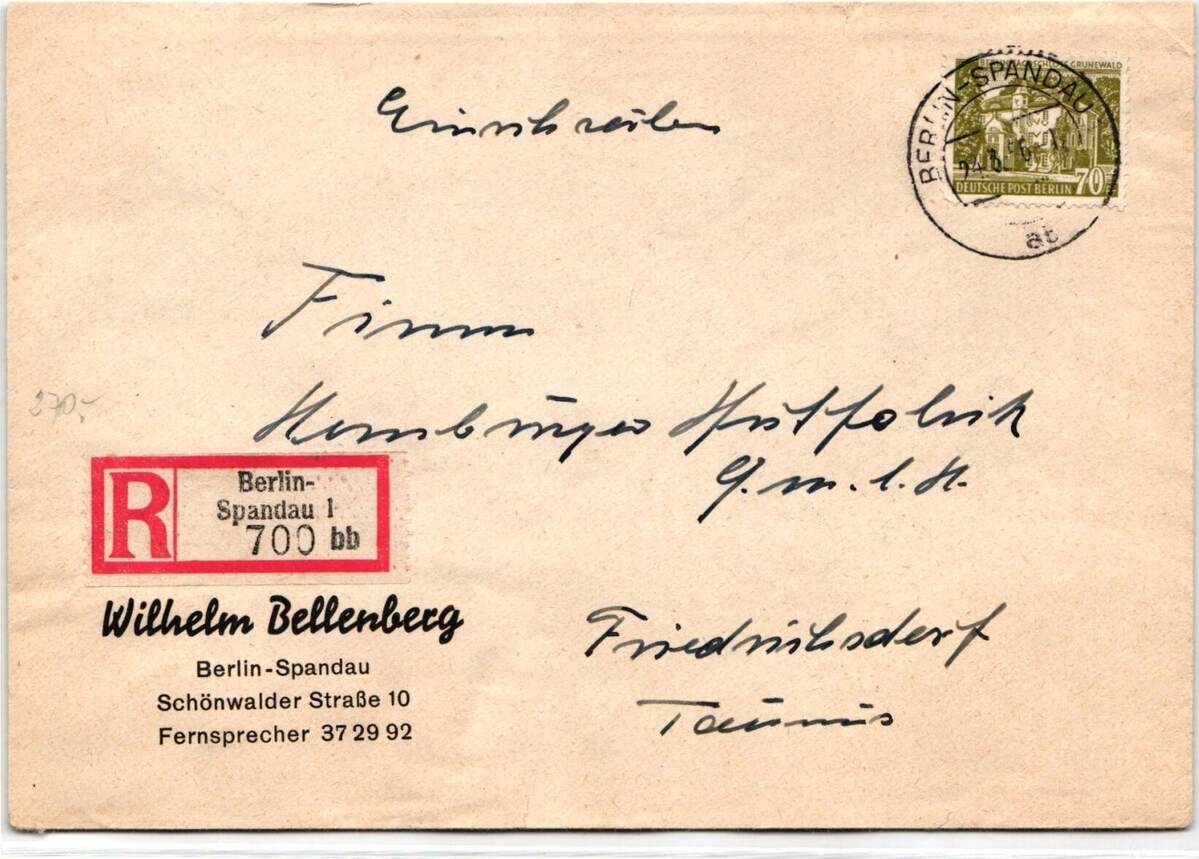 Einschreiben
BERLIN JAGDSCHLOSS GRUNEWALD
DEUTSCHE POST BERLIN 70
BERLIN-SPANDAU
24.8.56
at
Firma
Homburger Hutfabrik
G.m.b.H.
270,-
R
Berlin-
Spandau 1
700 bb
Wilhelm Bellenberg
Berlin-Spandau
Schönwalder Straße 10
Fernsprecher 37 29 92
Friedrichsdorf
Taunus